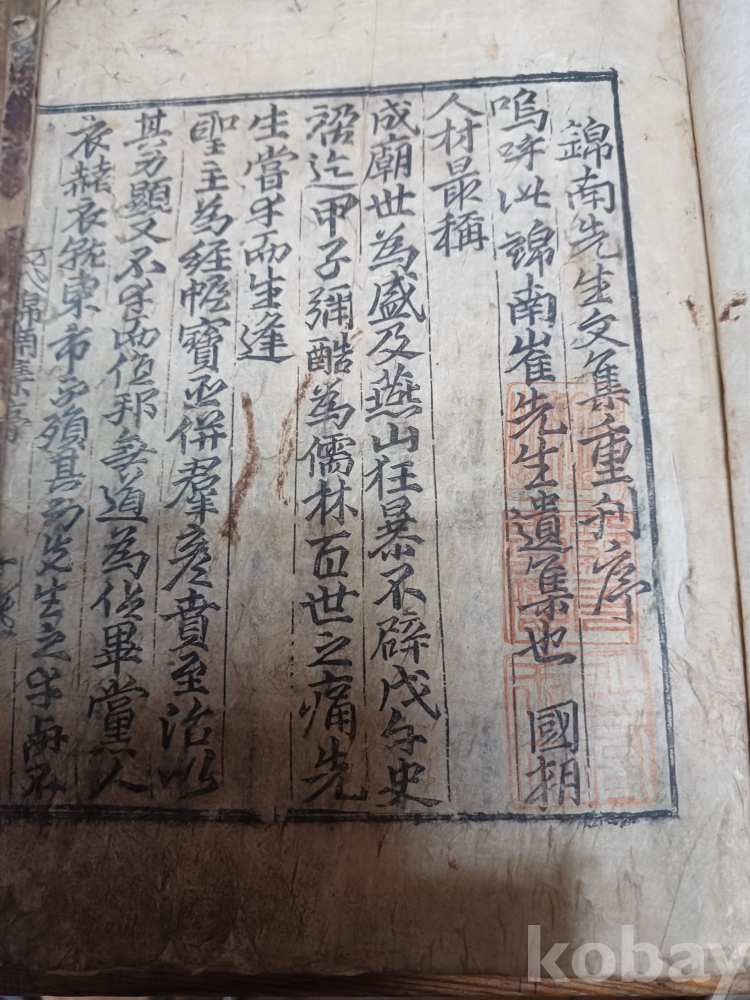 錦南先生文集重刊序
嗚呼此錦南崔先生遺集也 國朝
人材最稱
成廟世為盛及燕山狂暴不辟戊午史
禍迄甲子彌酷為儒林百世之痛先
生當才而生逢
聖主為經幄寶丞併羣彥賁至治以
其方顯又不才而位邦無道為佔畢黨人
衣赭衣就東市而殞其
先生之才
錦南集序
kobay